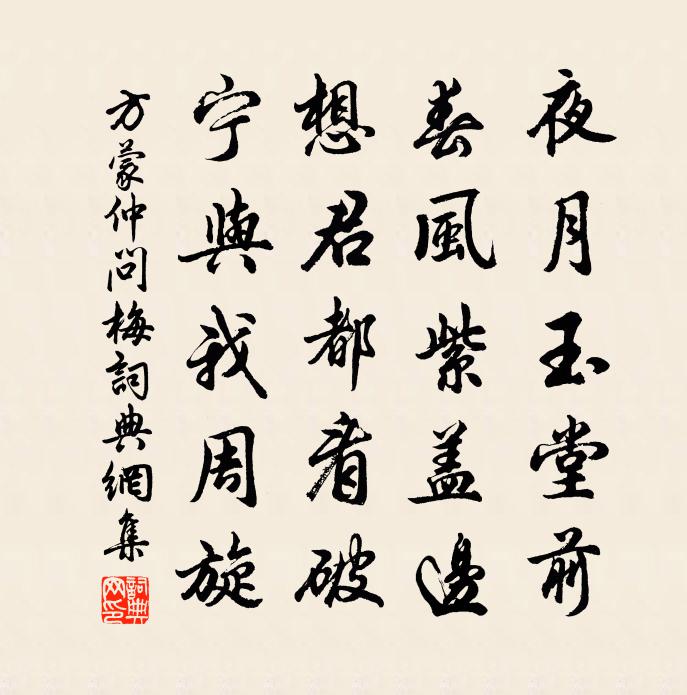 夜月玉堂前
春風紫盖邊
想君都看破
宁與我周旋
方蒙仲問梅詞典網集
詞典網印